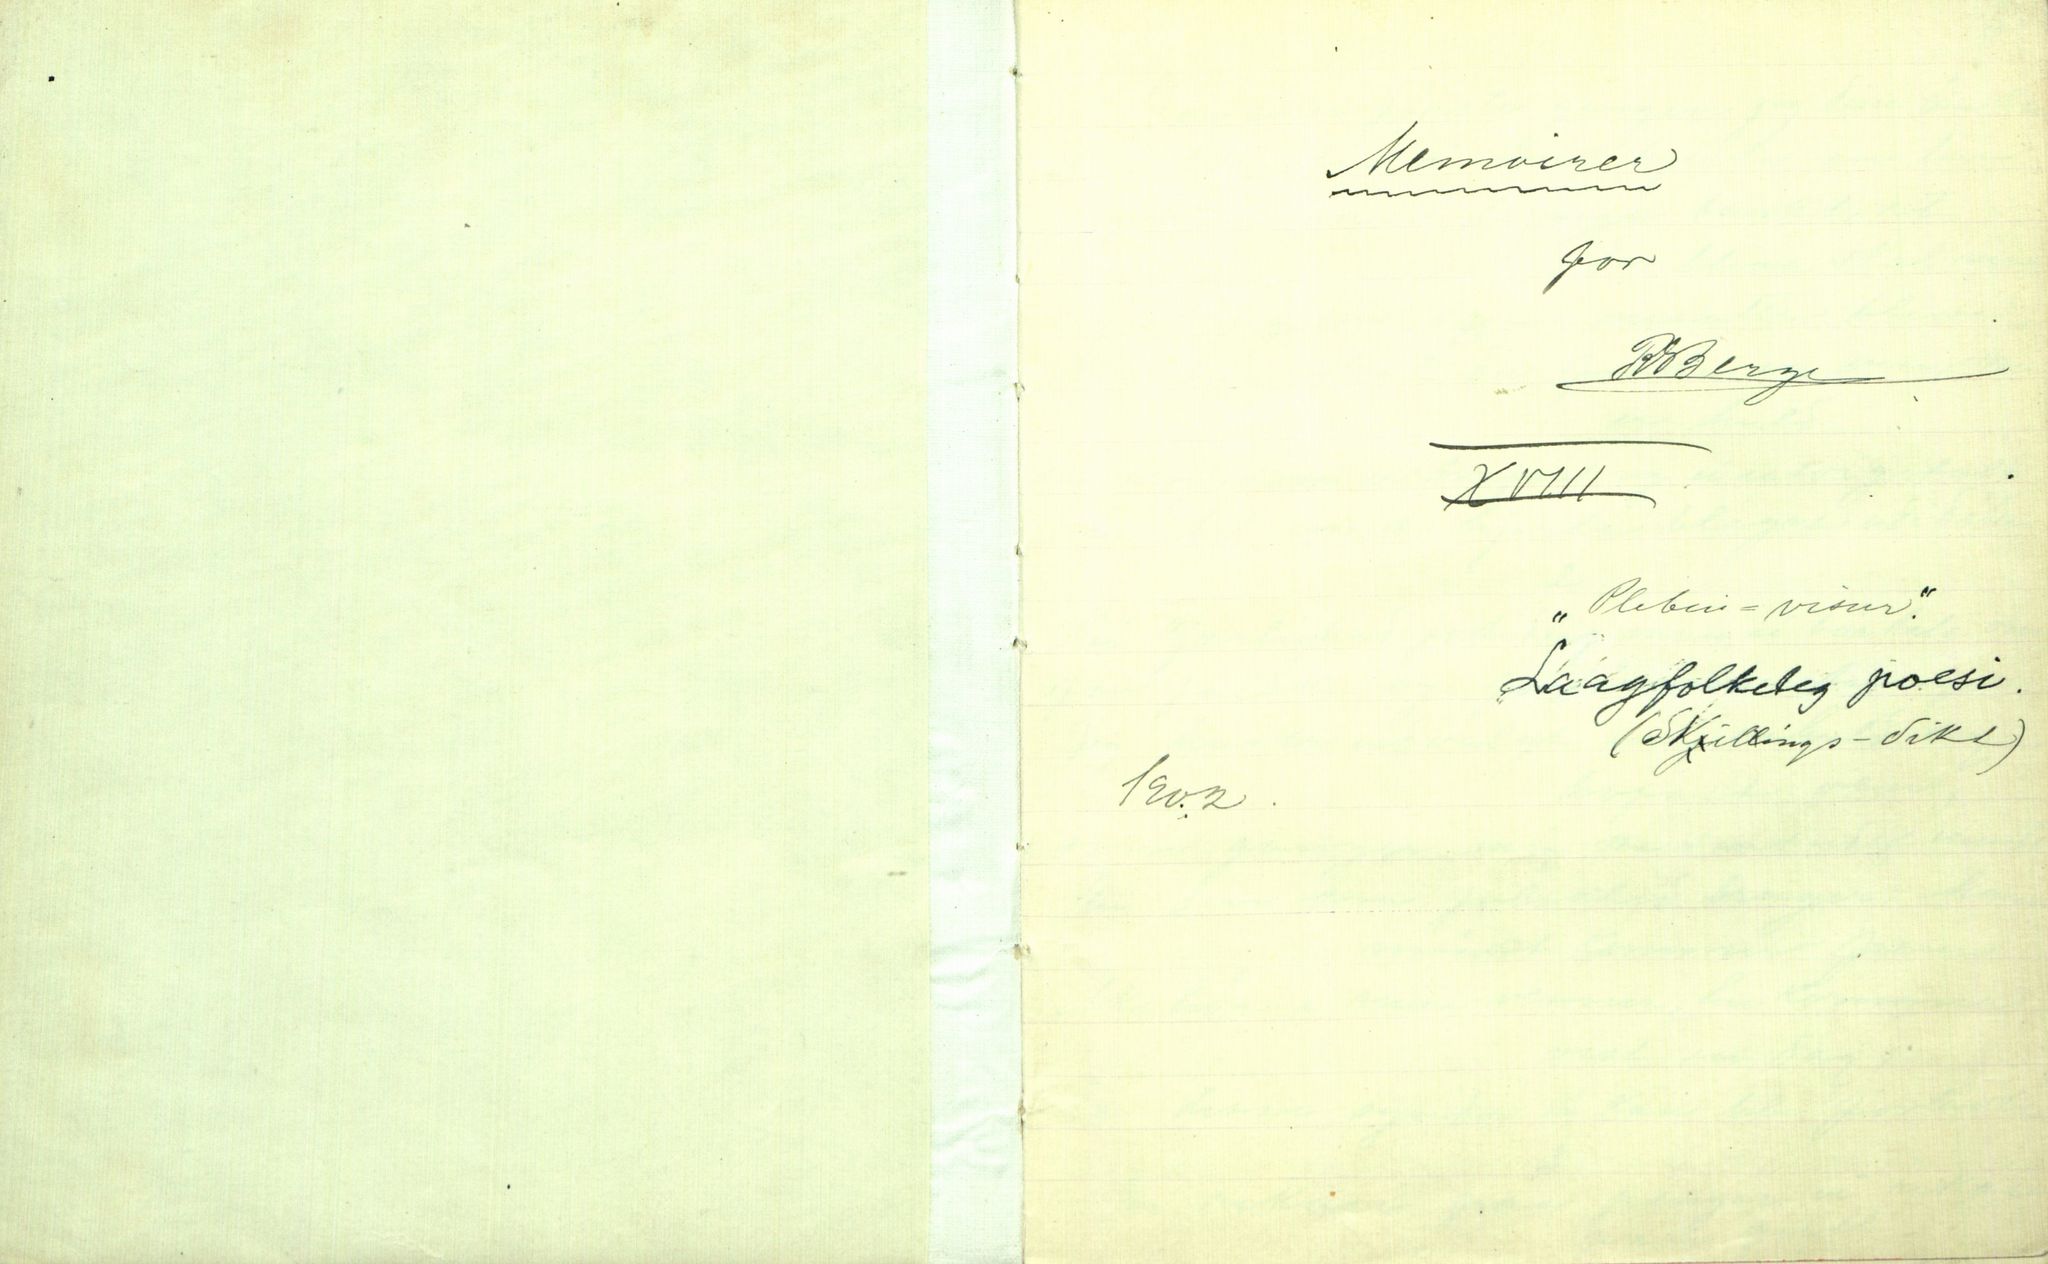 Memoirer
for
RBerge
XVIII
„Plebei-visur".
Laagfolkeleg poesi.
(Skjillings-dikt)
1902.